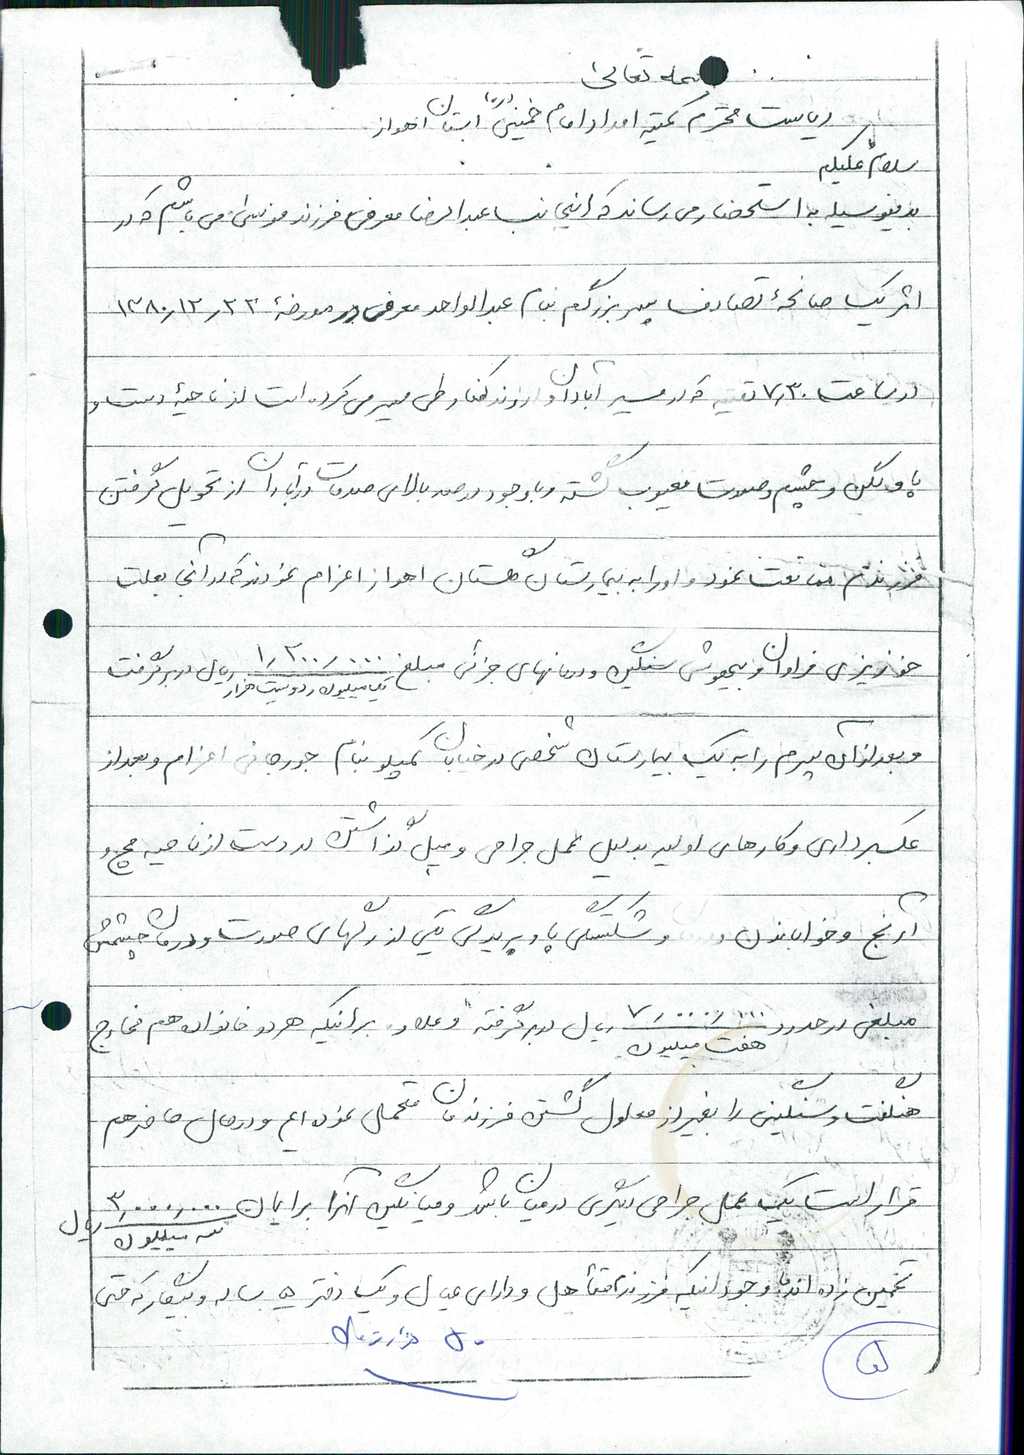 بسمه تعالی
ریاست محترم کمیته امداد امام خمینی (ره) استان اهواز
سلام علیکم
بدینوسیله به استحضار می رساند که اینجانب عبدالرضا معرفی فرزند موسی می باشم که در
اثر یک صانحهٔ تصادف پسر بزرگم بنام عبدالواحد معرفی در مورخهٔ ۱۳۸۰٫۱۲٫۲۳
در ساعت ۷٫۳۰ دقیقه که در مسیر آبادان و اروندکنار طی مسیر می کرده است از ناحیهٔ دست و
پا و لگن و چشم و صورت معیوب گشته و با وجود درصد بالای صدمات در آبادان از تحویل گرفتن
فرزندم ممانعت نمود و او را به بیمارستان گلستان اهواز اعزام نمودند که در آنجا بعلت
خونریزی فراوان و بیهوشی سنگین و درمانهای جزئی مبلغ ۱٫۲۰۰٫۰۰۰ ریال در بر گرفت
یک میلیون و دویست هزار
و بعد از آن پسرم را به یک بیمارستان شخصی در خیابان کمپلو بنام اعزام و بعد از
عکسبرداری و کارهای اولیه بدلیل عمل جراحی و میل گذاشتن در دست از ناحیه مچ و
آرنج و خواباندن و شکستگی پا و بریدگی یکی از رگهای صورت و درمان چشمش
مبلغی در حدود ۷٫۰۰۰٫۰۰۰ ریال در بر گرفته و علاوه بر اینکه هر دو خانواده هم مخارج
هفت میلیون
هنگفت و سنگینی را بغیر از معلول گشتن فرزندمان متحمل نموده ایم و در حال حاضر هم
قرار است یک عمل جراحی دیگری در میان باشد و میانگین آنرا برایمان ۳٫۰۰۰٫۰۰۰ ریال
سه میلیون
تخمین زده اند با وجود اینکه فرزندم متأهل و دارای عیال و یک دختر ۵ ساله و بیکار که حتی
۵۰ هزار تومان